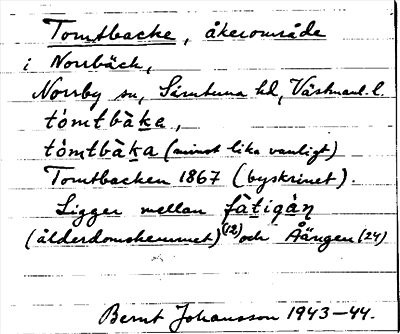 Tomtbacke, åkerområde
i Norrbäck,
Norrby sn, Simtuna hd, Västmanl. l.
tòmtbàka,
tòmtbàka (minst lika vanligt)
Tomtbacken 1867 (byskrinet).
Ligger mellan fàtigàṇ
(ålderdomshemmet) (12) och Åängen (24)
Bernt Johansson 1943-44.